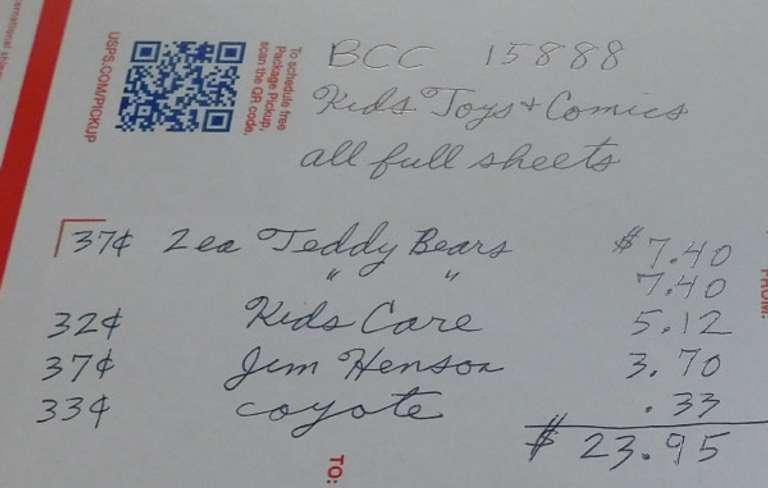 To schedule free
Package Pickup,
scan the QR code.
USPS.COM/PICKUP
BCC 15888
Kids Toys + Comics
all full sheets
37¢ 2 ea Teddy Bears $7.40
" " 7.40
32¢ Kids Care 5.12
37¢ Jim Henson 3.70
33¢ coyote .33
$ 23.95
TO:
FROM: